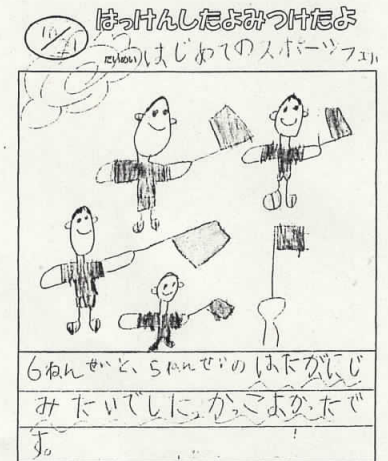 はっけんしたよみつけたよ
(だいめい)はじめてのスポーツフェ
6ねんせいと、5ねんせいの はたがにじ
みたいでした、かっこよかったで
す。